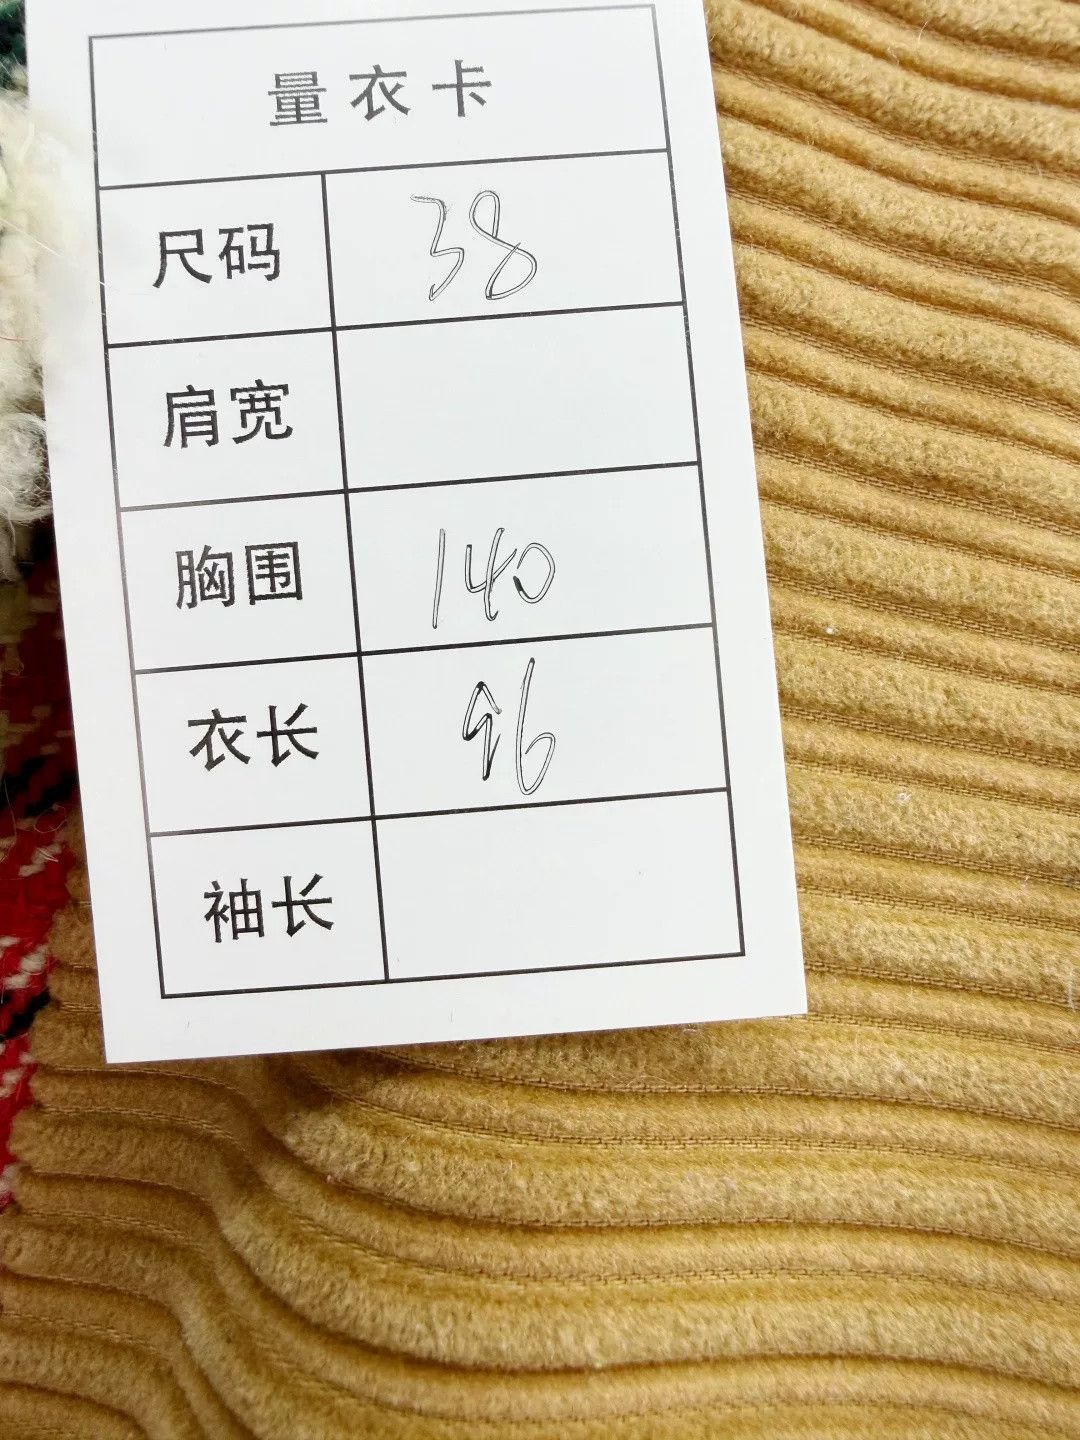 量衣卡
尺码 38
肩宽
胸围 140
衣长 96
袖长